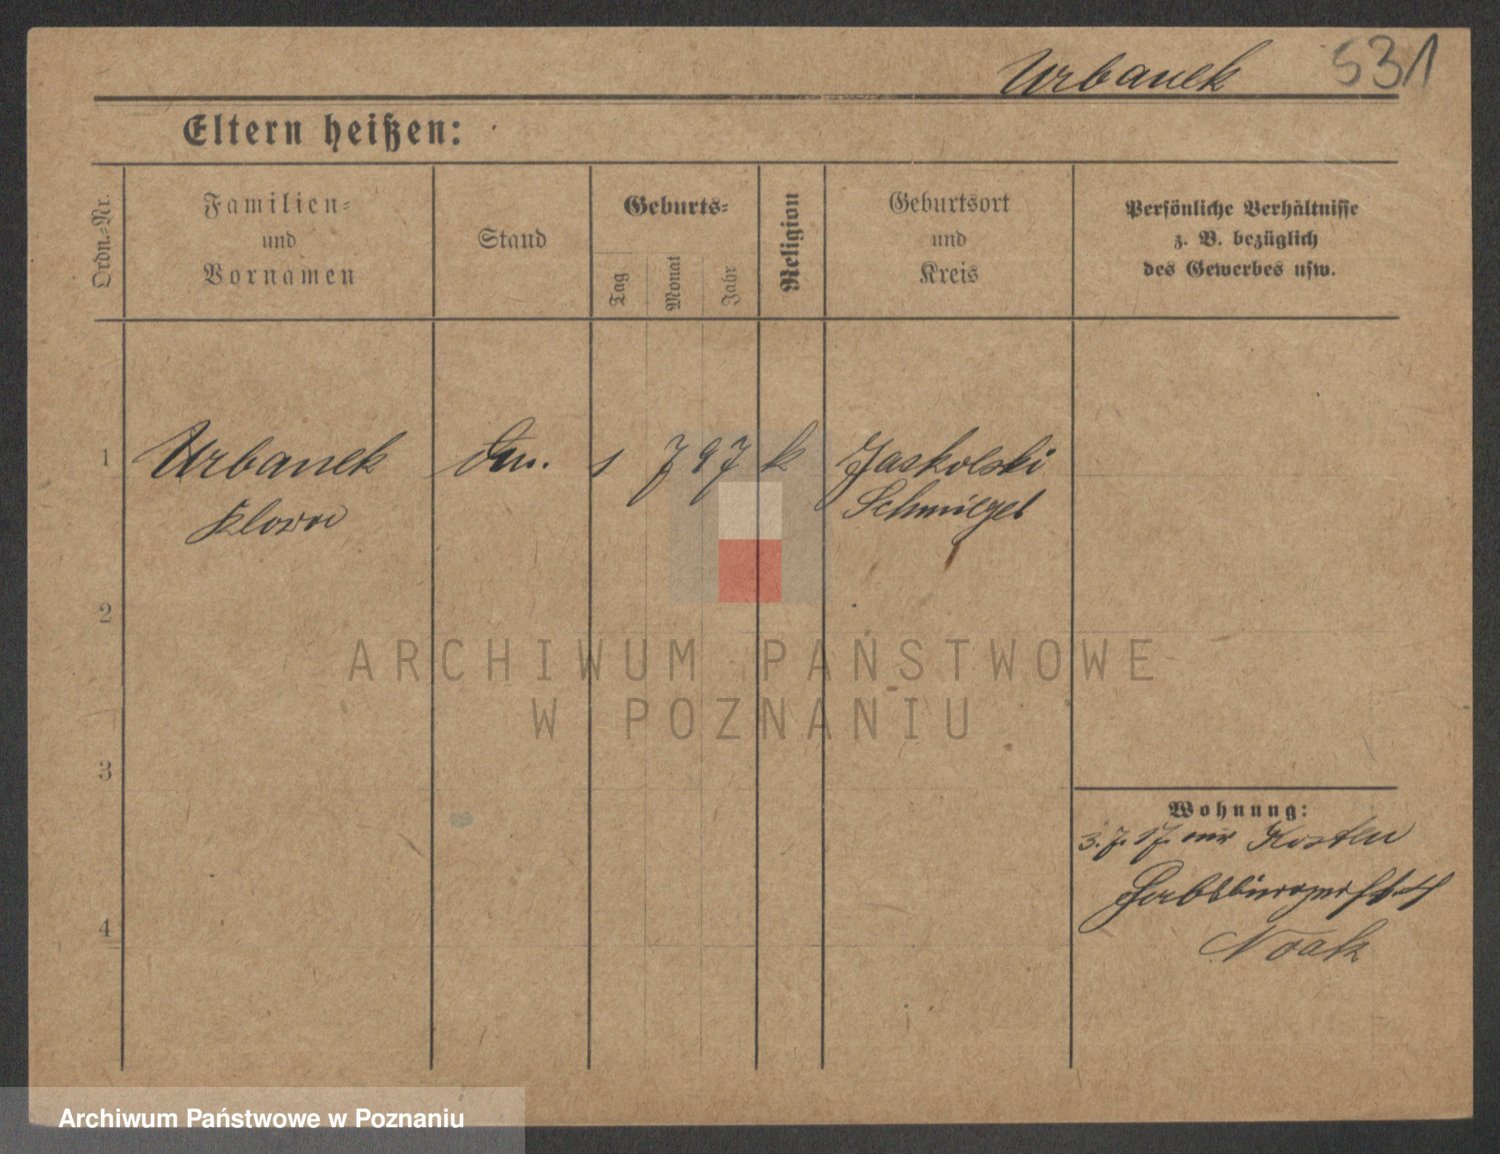 Urbanek 531
Eltern heißen:
Ordn.-Nr.
Familien-
und
Vornamen
Stand
Geburts-
Tag
Monat
Jahr
Religion
Geburtsort
und
Kreis
Persönliche Verhältnisse
z. B. bezüglich
des Gewerbes usw.
1 Urbanek 1 7 97 k Jaskolski
Schmiegel
2
3
4
Wohnung:
3. 7. 17. Kosten
Noak
ARCHIWUM PAŃSTWOWE
W POZNANIU
Archiwum Państwowe w Poznaniu